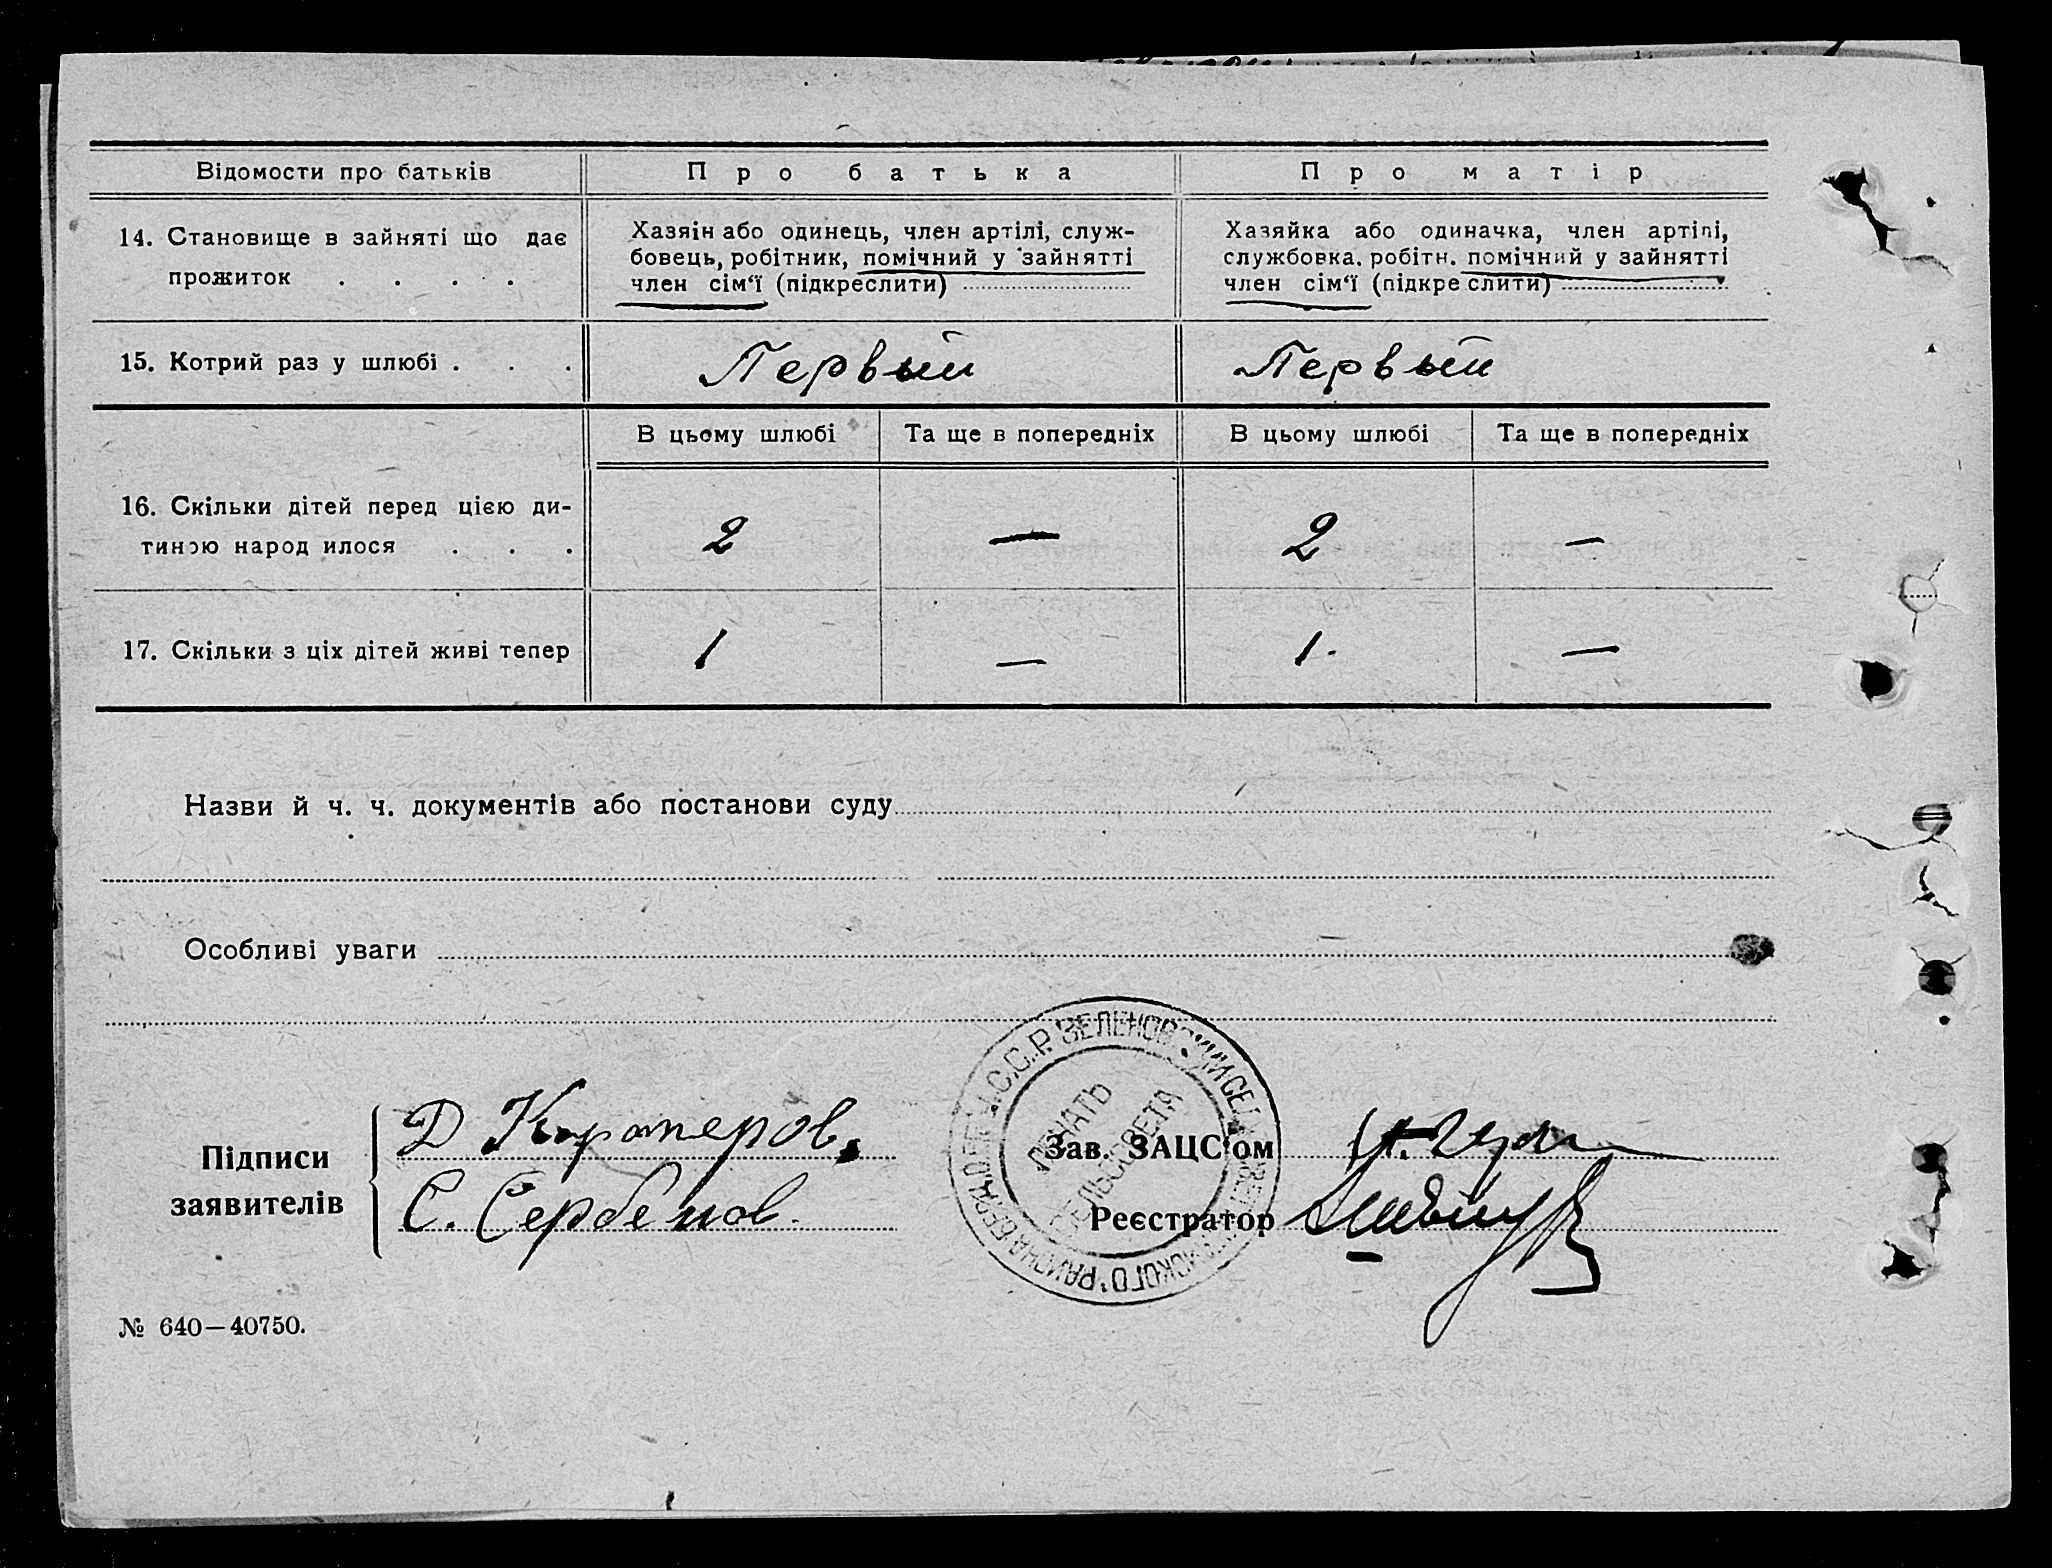 Відомости про батьків
Про батька
Про матір
14. Становище в зайняті що дає
прожиток . . . .
Хазяін або одинець, член артілі, служ-
бовець, робітник, помічний у зайнятті
член сім‘ї (підкреслити)
Хазяйка або одиначка, член артілі,
службовка. робітн. помічний у зайнятті
член сім‘ї (підкреслити)
15. Котрий раз у шлюбі . . .
Первый
Первый
В цьому шлюбі
Та ще в попередніх
В цьому шлюбі
Та ще в попередніх
16. Скільки дітей перед цією ди-
тиною народилося . . .
2
—
2
—
17. Скільки з ціх дітей живі тепер
1
—
1.
—
Назви й ч. ч. документів або постанови суду
Особливі уваги
С.С.Р. ЗЕЛЕНОВСКИЙ
ПЕЧАТЬ
СЕЛЬСОВЕТА
РАЙОНА
Підписи
заявителів
Д
С. Сербенов.
Зав. ЗАЦС‘ом
Реєстратор
№ 640—40750.